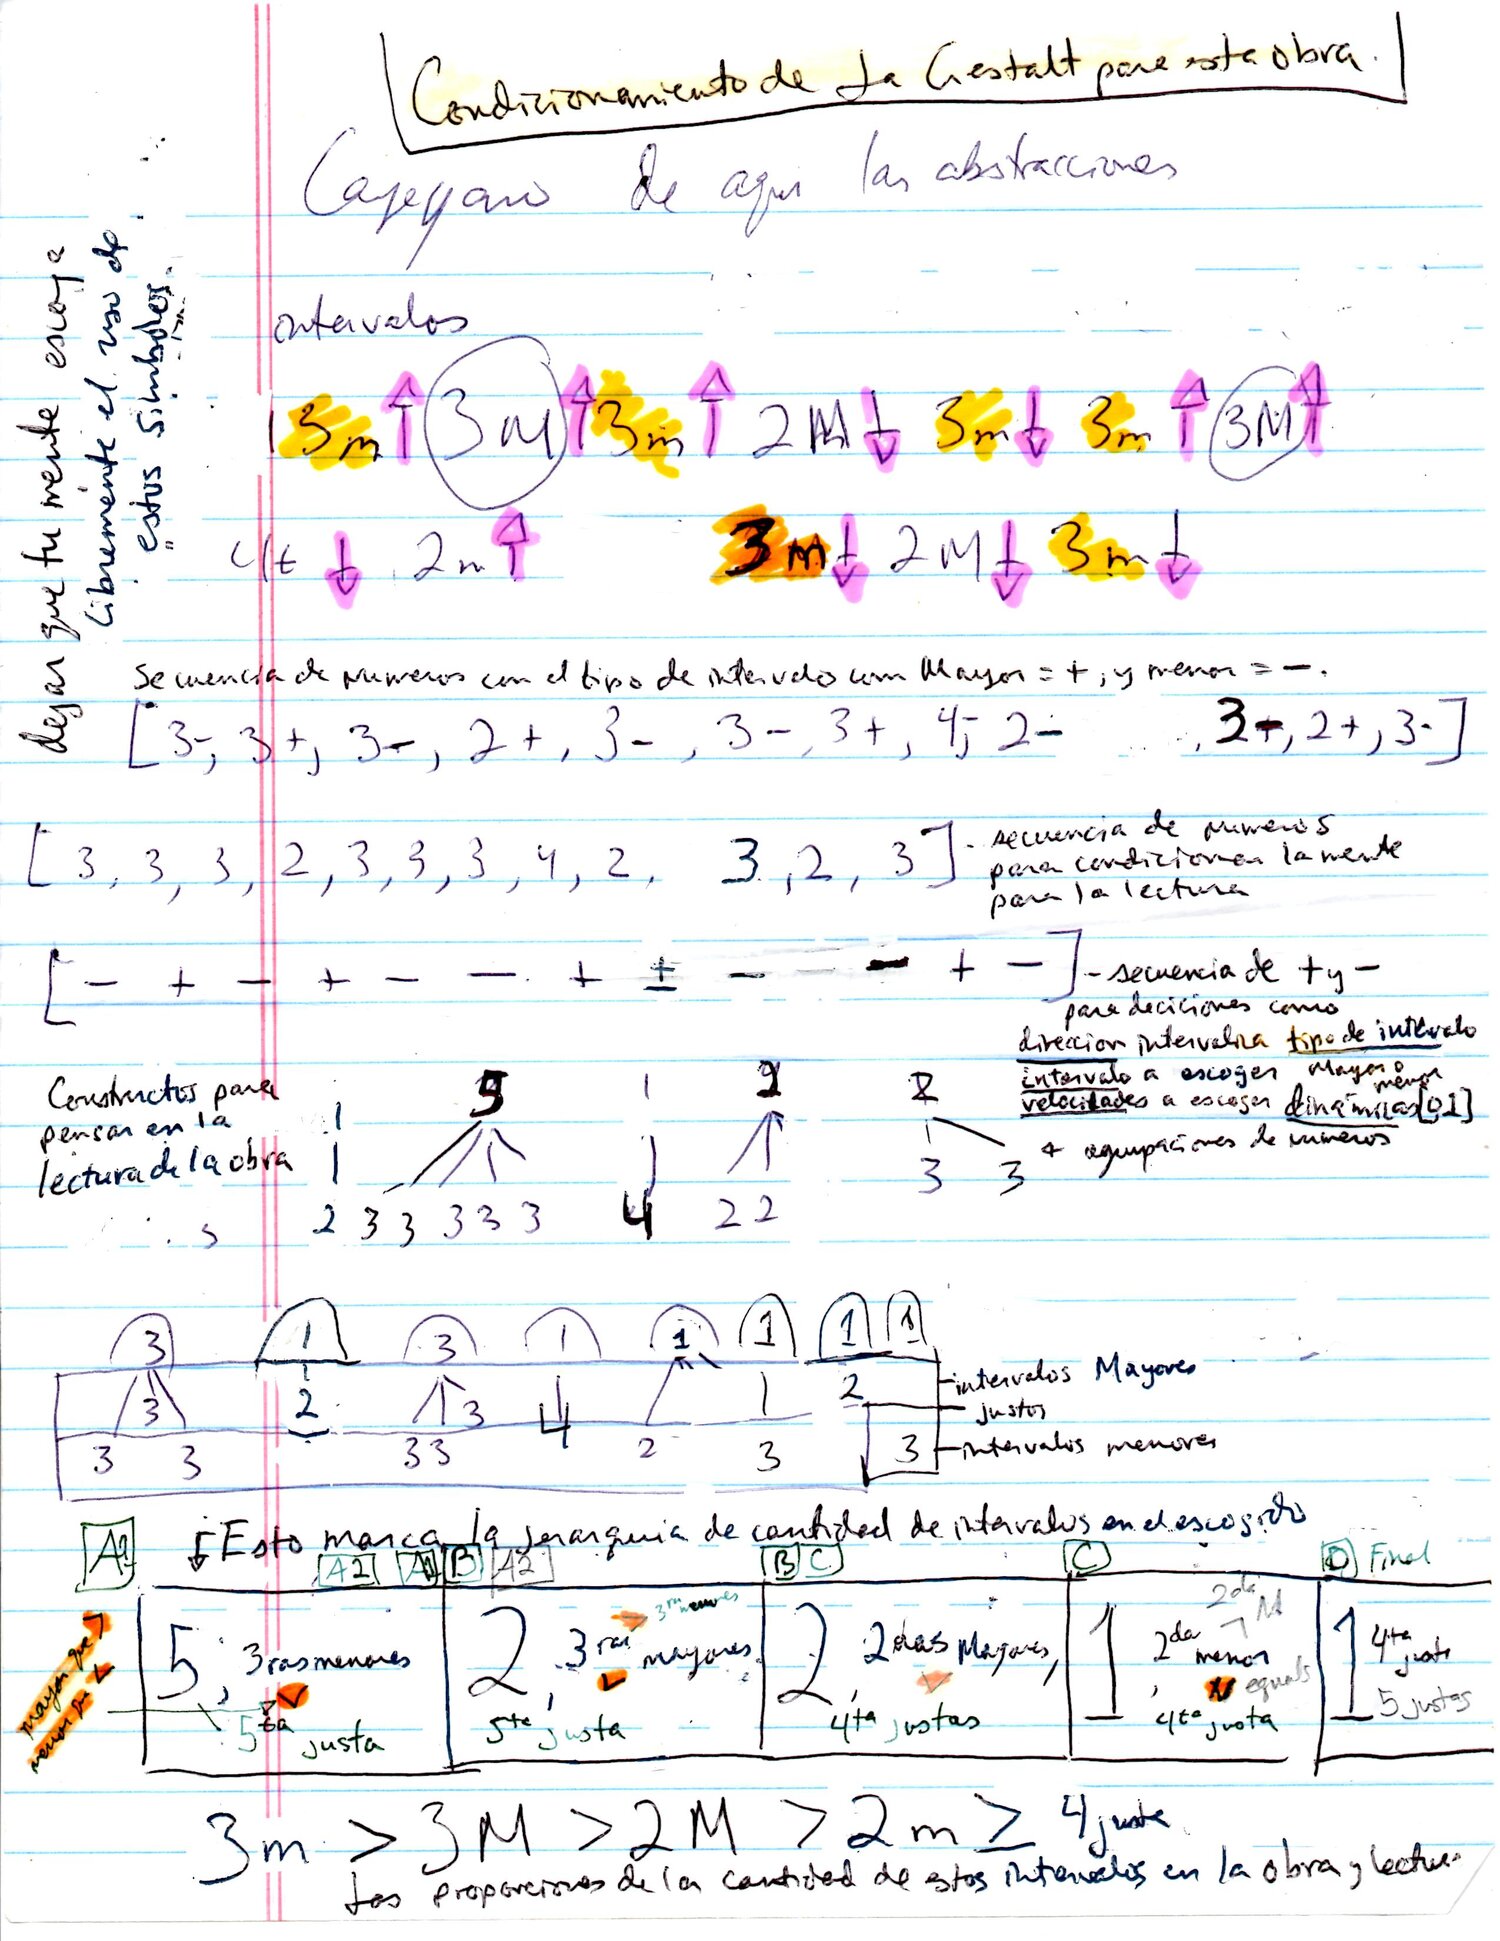 Condicionamiento de la Gestalt para esta obra.
de aqui las abstracciones
dejar que tu mente escoja
libremente el uso de
estos simbolos
intervalos
3m ↑ 3M ↑ 3m ↑ 2M ↓ 3m ↓ 3m ↑ 3M ↑
4t ↓ 2m ↑ 3m ↓ 2M ↓ 3m ↓
Secuencia de numeros con el tipo de intervalo com Mayor = +, y menor = −.
[3-, 3+, 3-, 2+, 3-, 3-, 3+, 4, 2- , 3-, 2+, 3-]
[3, 3, 3, 2, 3, 3, 3, 4, 2, 3, 2, 3]
- secuencia de numeros
para condicionar la mente
para la lectura
[− + − + − − + ± − − + −]
- secuencia de + y −
para deciciones como
direccion intervalica tipo de intervalo
intervalo a escoger Mayor o menor
velocidades a escoger dinamicas [0,1]
+ agrupaciones de numeros
Constructos para
pensar en la
lectura de la obra
1 5 1 2 2
2 3 3 3 3 3 4 2 2 3 3
3 1 3 1 1 1 1 1
3 2 3 4 2
3 3 3 3 2 3 3
intervalos Mayores
justos
intervalos menores
A1 ↓ Esto marca la jerarquia de cantidad de intervalos en el escogido
A2 A1 B A2 B C C D Final
mayor que >
menor que <
5, 3ras menores
5ta justa
2, 3ras mayores
3ras menores
5ta justa
2, 2das Mayores,
4ta justas
1, 2da menor
2da M
equals
4ta justa
1 4ta justa
5 justas
3m > 3M > 2M > 2m ≥ 4 justa
Las proporciones de la cantidad de estos intervalos en la obra y lectura